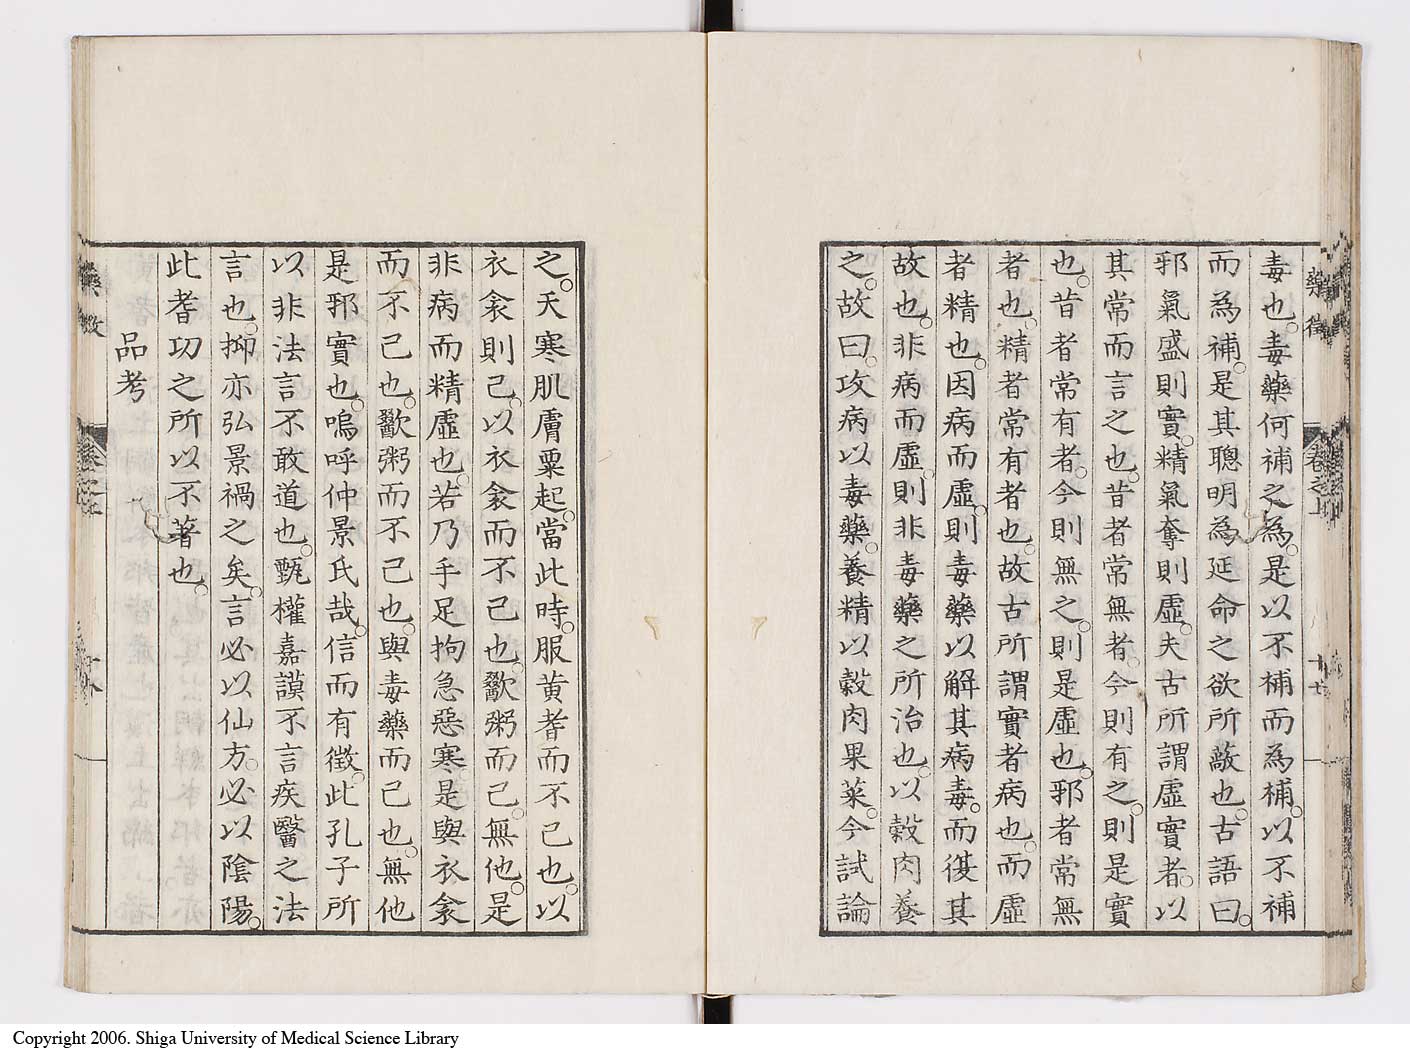 毒也。毒藥何補之為。是以不補而為補。以不補
而為補。是其聰明為延命之欲所蔽也。古語曰。
邪氣盛則實。精氣奪則虛。夫古所謂虛實者。以
其常而言之也。昔者常無者。今則有之。則是實
也。昔者常有者。今則無之。則是虛也。邪者常無
者也。精者常有者也。故古所謂實者病也。而虛
者精也。因病而虛。則毒藥以解其病毒。而復其
故也。非病而虛。則非毒藥之所治也。以穀肉養
之。故曰。攻病以毒藥。養精以穀肉果菜。今試論
之。天寒肌膚粟起。當此時。服黃耆而不已也。以
衣衾則已。以衣衾而不已也。歠粥而已。無他。是
非病而精虛也。若乃手足拘急惡寒。是與衣衾
而不已也。歠粥而不已也。與毒藥而已也。無他
是邪實也。嗚呼仲景氏哉。信而有徵。此孔子所
以非法言不敢道也。甄權嘉謨不言疾醫之法
言也。抑亦弘景禍之矣。言必以仙方。必以陰陽。
此耆功之所以不著也。
品考
藥徵
卷之上
Copyright 2006. Shiga University of Medical Science Library